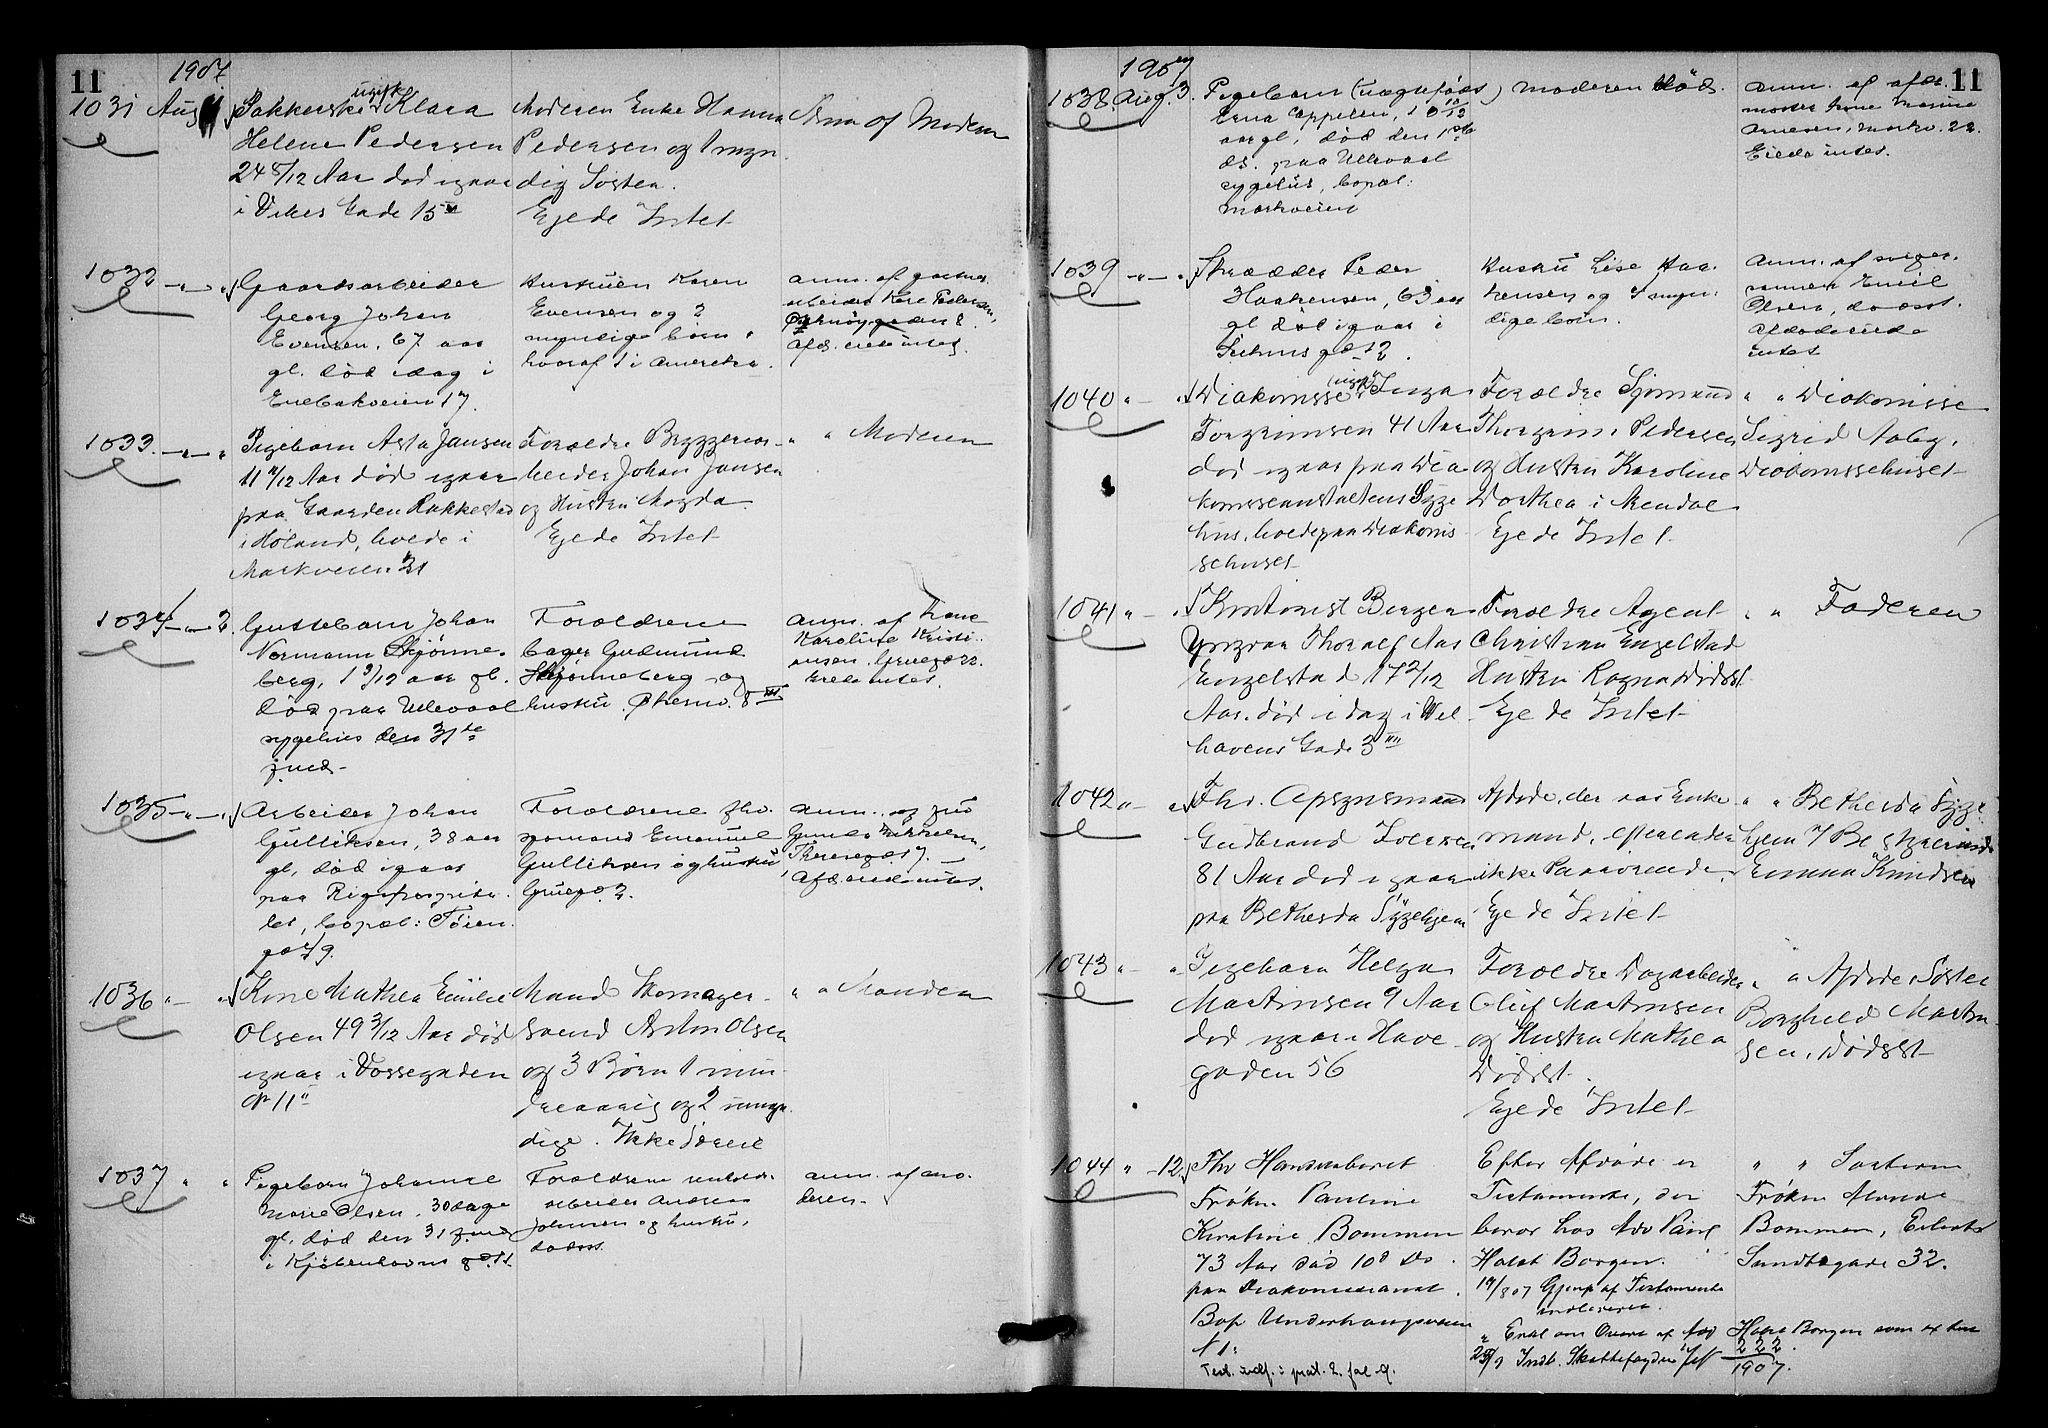 11
1907
1031 Aug 1
Pakkerske ugift Klara
Helene Pedersen
24 5/12 Aar død igaar
i Vibes Gade 15
Moderen Enke Hanna
Pedersen og 1 myn
dig Søster.
Ejede Intet
Anm af Moderen
1032 - " - "
Gaardsarbeider
Georg Johan
Evensen, 67 aar
gl. død idag i
Enebakveien 17.
Hustruen Karen
Evensen og 2
myndige børn,
hvoraf 1 i Amerika.
anm. af
arbeider Kare Pedersen,
8.
Afd. eiede intet.
1033. - " - "
Pigebarn Asta Jansen
11 Aar død igaar
paa Gaarden Rakkestad
i Høland, boede i
Markveien 21
Forældre Bryggeriar-
beider Johan Jansen
og Hustru Magda.
Ejede Intet
" " Moderen
1034 - " - 2.
Guttebarn Johan
Normann Skjønne-
berg, 1 9/12 aar gl.
død paa Ullevaal
sygehus den 31te
juli.
Forældrene
bager Gudmund
Skjønneberg og
hustru.
anm. af Frue
Karoline Kristi-
ansen, Gruegd 22.
Eiede intet.
1035 - " - "
Arbeider Johan
Gulliksen, 38 aar
gl., død igaar
paa Rigshospita-
let, bopæl: Tøien-
gd 9.
Forældrene
Emanuel
Gulliksen og hustru,
Gruegd 2.
anm. af
Gunda
Theresegd 17.
Afd. eiede intet.
1036 " - "
Kone Mathea Emilie
Olsen 49 3/12 Aar død
igaar i Vossegaden
№ 11
Mand Skomager-
svend Anton Olsen
og 3 Børn 1 min-
dreaarig og 2 myn-
dige. Ikke Særeie
" " Manden
1037 " "
Pigebarn Johanne
Marie Olsen, 30 dage
gl., død den 31 juli
i Kjøbenhavns gd. 11.
Forældrene
arbeider Anders
Johnsen og hustru,
dødsst.
anm. af mo-
deren.
11
1907
1038. Aug. 3.
Pigebarn (uægtefødt)
Erna Cappelen, 1 0/12
aar gl, død den 1ste
ds. paa Ullevaal
sygehus, bopæl:
Markveien
moderen død.
anm. af afdødes
Arnesen, Markv. 22.
Eiede intet.
1039 - " - "
Skrædder Peder
Haakensen, 63 aar
gl død igaar i
gd 12.
Hustru Lise Haa-
kensen og 5 myn-
dige børn.
anm. af sviger-
sønnen Emil
Olsen, dødsst.
Afdøde eiede
intet
1040 " - "
Diakonisse (ugift) Inga
Torgrimsen 41 Aar
død igaar paa Dia-
konisseanstaltens Syge
hus, boede paa Diakonis-
sehuset
Forældre Sjømand
Thorgrim Pedersen
og Hustru Karoline
Dorthea i Arendal
Ejede Intet
" " Diakonisse
Sigrid Aaby,
Diakonissehuset
1041 " - "
Kontorist Birger
Yngvar Thoralf Aas
Engelstad 17 2/12
Aar. død i dag i Wel-
havens Gade 3
Forældre Agent
Christian Engelstad
Hustru Ragna Dødsst
Ejede Intet
" " Faderen
1042 " - "
Fhv. Opsynsmand
Gudbrand Iversen
81 Aar død igaar
paa Bethesda Sygehjem
Afdøde, der var Enke
mand, efterlader
ikke Paarørende.
Ejede Intet
" " Bethesda Syge-
hjem v/ Bestyrerinde
Emma Knudsen
1043 " - "
Pigebarn Helga
Martinsen 9 Aar
død igaar i Have-
gaden 56
Forældre Dagarbeider
Oluf Martinsen
og Hustru Mathea
Dødsst.
Ejede Intet
" " Afdødes Søster
Borghild Martin-
sen, Dødsst
1044 " - 12.
Fhv
Frøken Pauline
Kirstine Bommen
73 Aar død 10d Ds.
paa Diakonisseanst.
Bop Underhaugsveien
№ 1.
Test. indf. i prot. 2. fol. 9.
Efter Afdøde er
Testamente, der
beror hos Adv Paul
Holst Borgen.
19/8 07 Gjenp af Testamente
indleveret.
" Erkl om Overt af Adv Holst Borgen som ex
25/9 Indb. Skattefogden Jff 222
1907.
" " Søsteren
Frøken
Bommen, Eilerts
Sundtsgade 32.